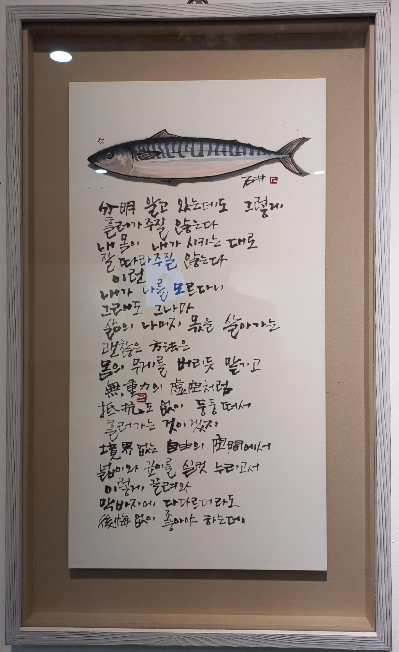 分明 알고 있는데도 그렇게
흘러가주질 않는다
내 몸이 내가 시키는 대로
잘 따라주질 않는다
이런
내가 나를 모르다니
그래도 그나마
삶의 나머지 몫을 살아가는
괜찮은 方法은
몸의 무게를 버리듯 맡기고
無重力의 虛空처럼
抵抗도 없이 둥둥 떠서
흘러가는 것이겠지
境界 없는 自由의 空間에서
넓이와 깊이를 실컷 누리고서
이렇게 끌려와
막바지에 다다르더라도
後悔없이 좋아야 하는데